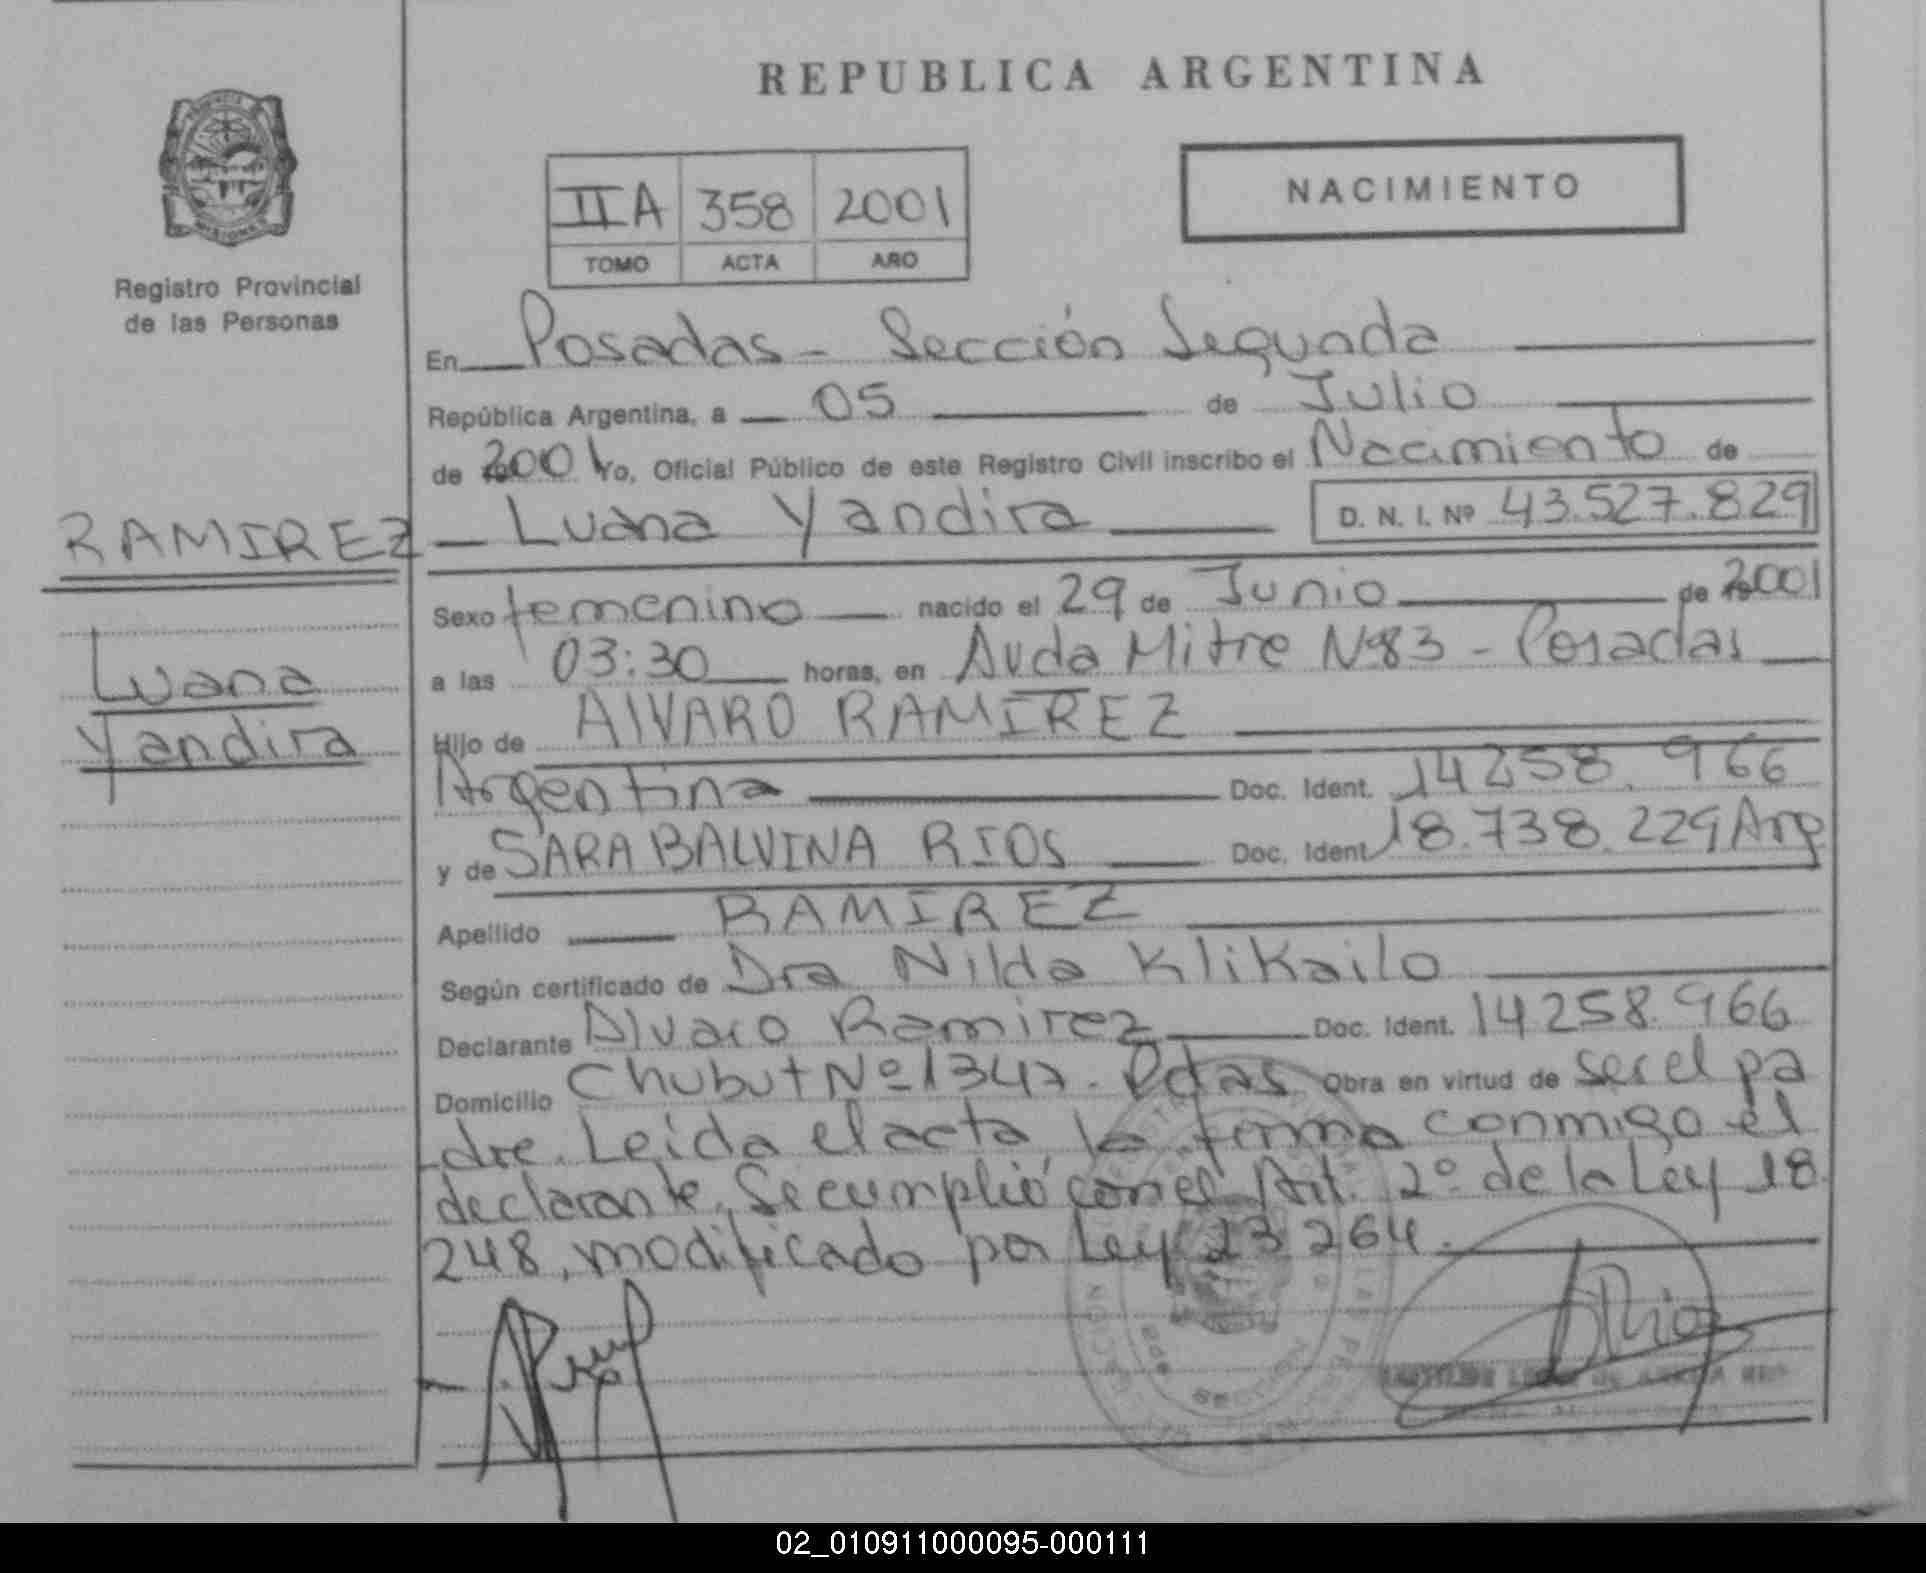 REPUBLICA ARGENTINA
NACIMIENTO
IIA 358 2001
TOMO ACTA AÑO
Registro Provincial
de las Personas
RAMIREZ
Luana
Yandira
En Posadas - Sección Segunda
República Argentina, a 05 de Julio
de 2001 Yo, Oficial Público de este Registro Civil inscribo el Nacimiento de
Luana Yandira D. N. I. Nº 43.527.829
Sexo femenino nacido el 29 de Junio de 2001
a las 03:30 horas, en Avda Mitre Nº83 - Posadas
Hijo de ALVARO RAMIREZ
Argentina Doc. Ident. 14258.966
y de SARA BALVINA RIOS Doc. Ident 18.738.229 Arg
Apellido RAMIREZ
Según certificado de Dra Nilda Klikailo
Declarante Alvaro Ramirez Doc. Ident. 14258.966
Domicilio Chubut Nº 1347. Pdas Obra en virtud de ser el pa
dre. Leida el acta la firma conmigo el
declarante. Se cumplió con el Art. 2º de la Ley 18
248, modificado por Ley 23 264.
02_010911000095-000111